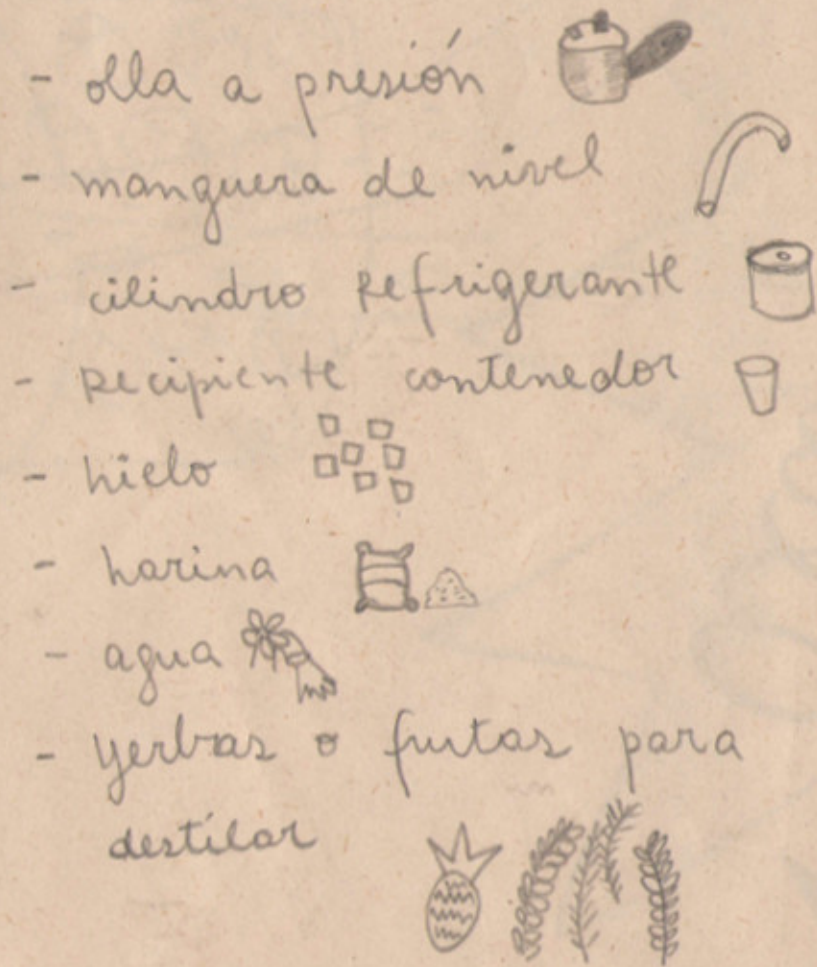 - olla a presión
- manguera de nivel
- cilindro refrigerante
- recipiente contenedor
- hielo
- harina
- agua
- yerbas o frutas para
destilar